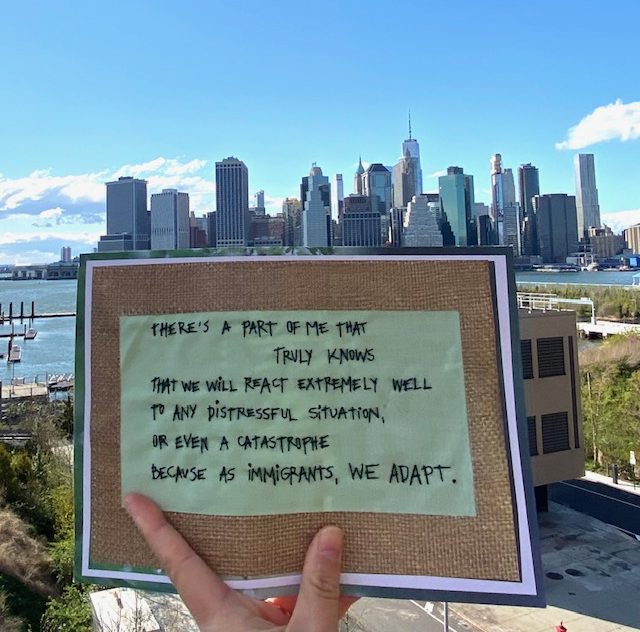 THERE'S A PART OF ME THAT
TRULY KNOWS
THAT WE WILL REACT EXTREMELY WELL
TO ANY DISTRESSFUL SITUATION,
OR EVEN A CATASTROPHE
BECAUSE AS IMMIGRANTS, WE ADAPT.